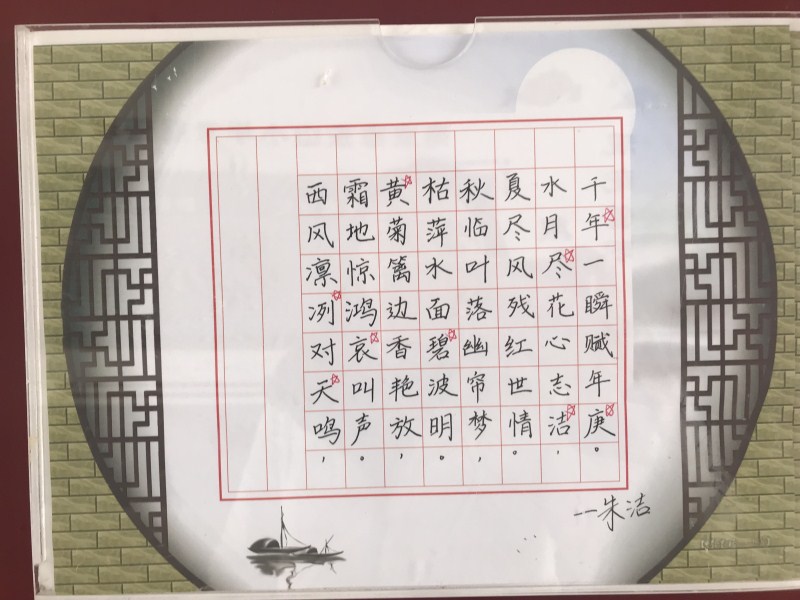 西风凛冽对天鸣,
霜地惊鸿哀叫声。
黄菊篱边香艳放,
枯萍水面碧波明。
秋临叶落幽帘梦,
夏尽风残红世情。
水月尽花心志洁,
千年一瞬赋年庚。
——朱洁